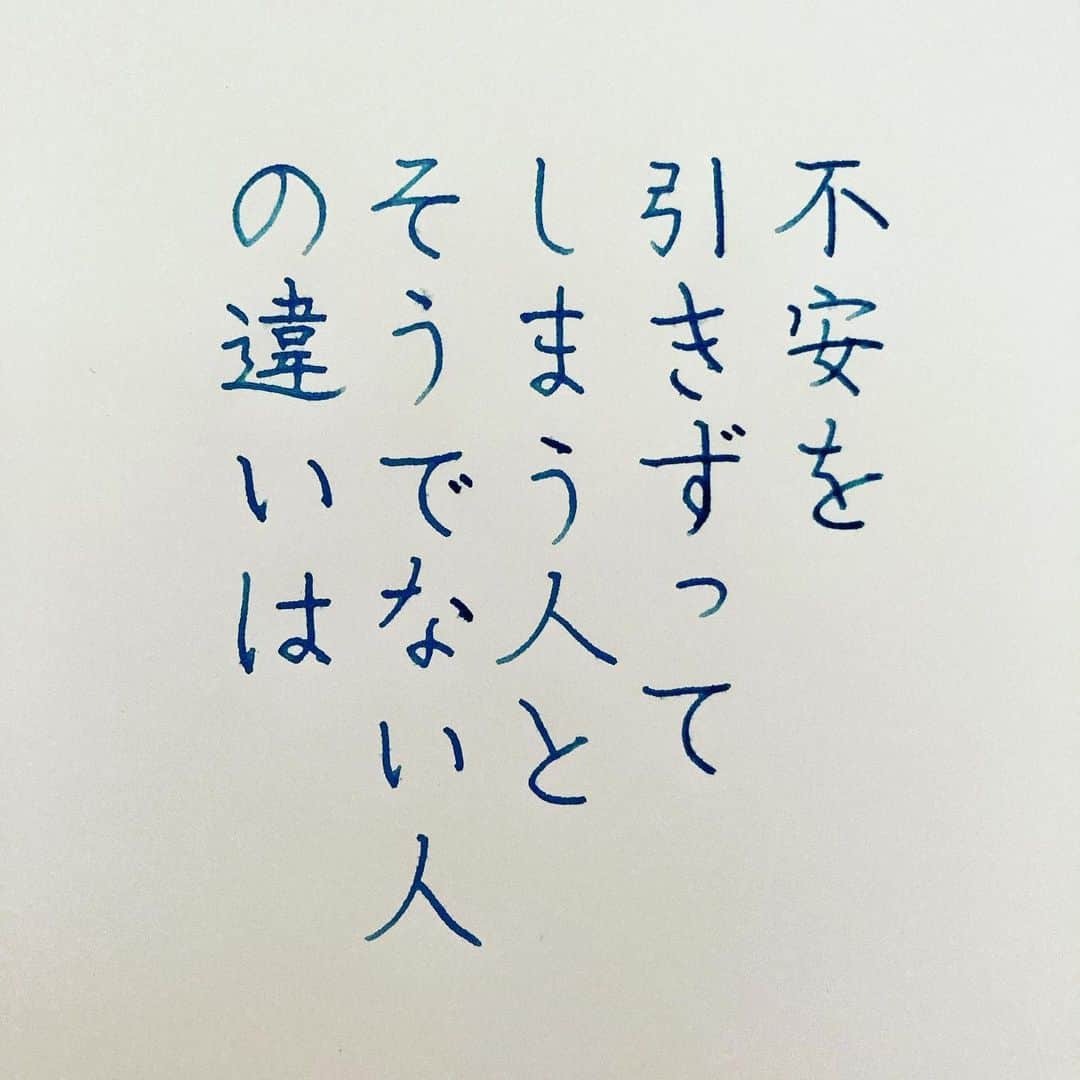 不安を
引きずって
しまう人と
そうでない人
の違いは